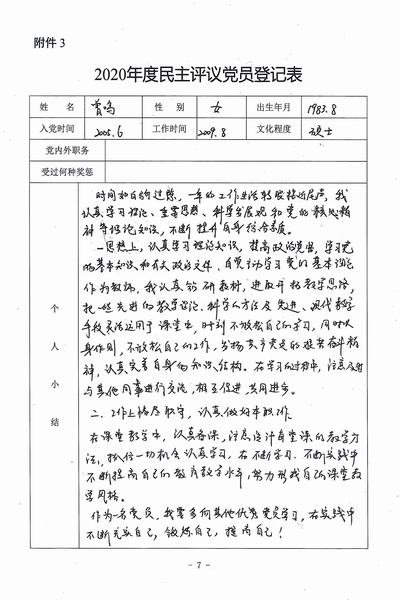 附件 3
2020年度民主评议党员登记表
姓 名 曾鸣 性 别 女 出生年月 1983.8
入党时间 2005.6 工作时间 2009.8 文化程度 硕士
党内外职务
受过何种奖惩
个人小结
时间如白驹过隙，一年的工作生活转眼接近尾声，我
认真学习理论、重要思想、科学发展观和党的核心精
神等理论知识，不断提升自身综合素质。
一.思想上，认真学习理论知识，提高政治觉悟，学习党
的基本知识和有关政治文件、自觉主动学习党的基本理论
作为教师，我认真钻研教材，进取开拓教学思路，
把一些先进的教学理论、科学的方法及先进、现代教学
手段灵活运用于课堂中，时刻不放松自己的学习，同时以
身作则，不放松自己的工作，发扬共产党员的艰苦奋斗精
神，认真完善自身的知识结构。在学习的过程中，注意及时
与其他同事进行交流，相互促进，共同进步。
二、工作上恪尽职守，认真做好本职工作。
在课堂教学中，认真备课，注意设计自堂课的教学方
法，抓住一切机会认真学习，在不断学习、不断实践中
不断提高自己的教育教学水平，努力形成自己课堂教
学风格。
作为一名党员，我要多向其他优秀党员学习，在实践中
不断充实自己，锻炼自己，提高自己！
- 7 -